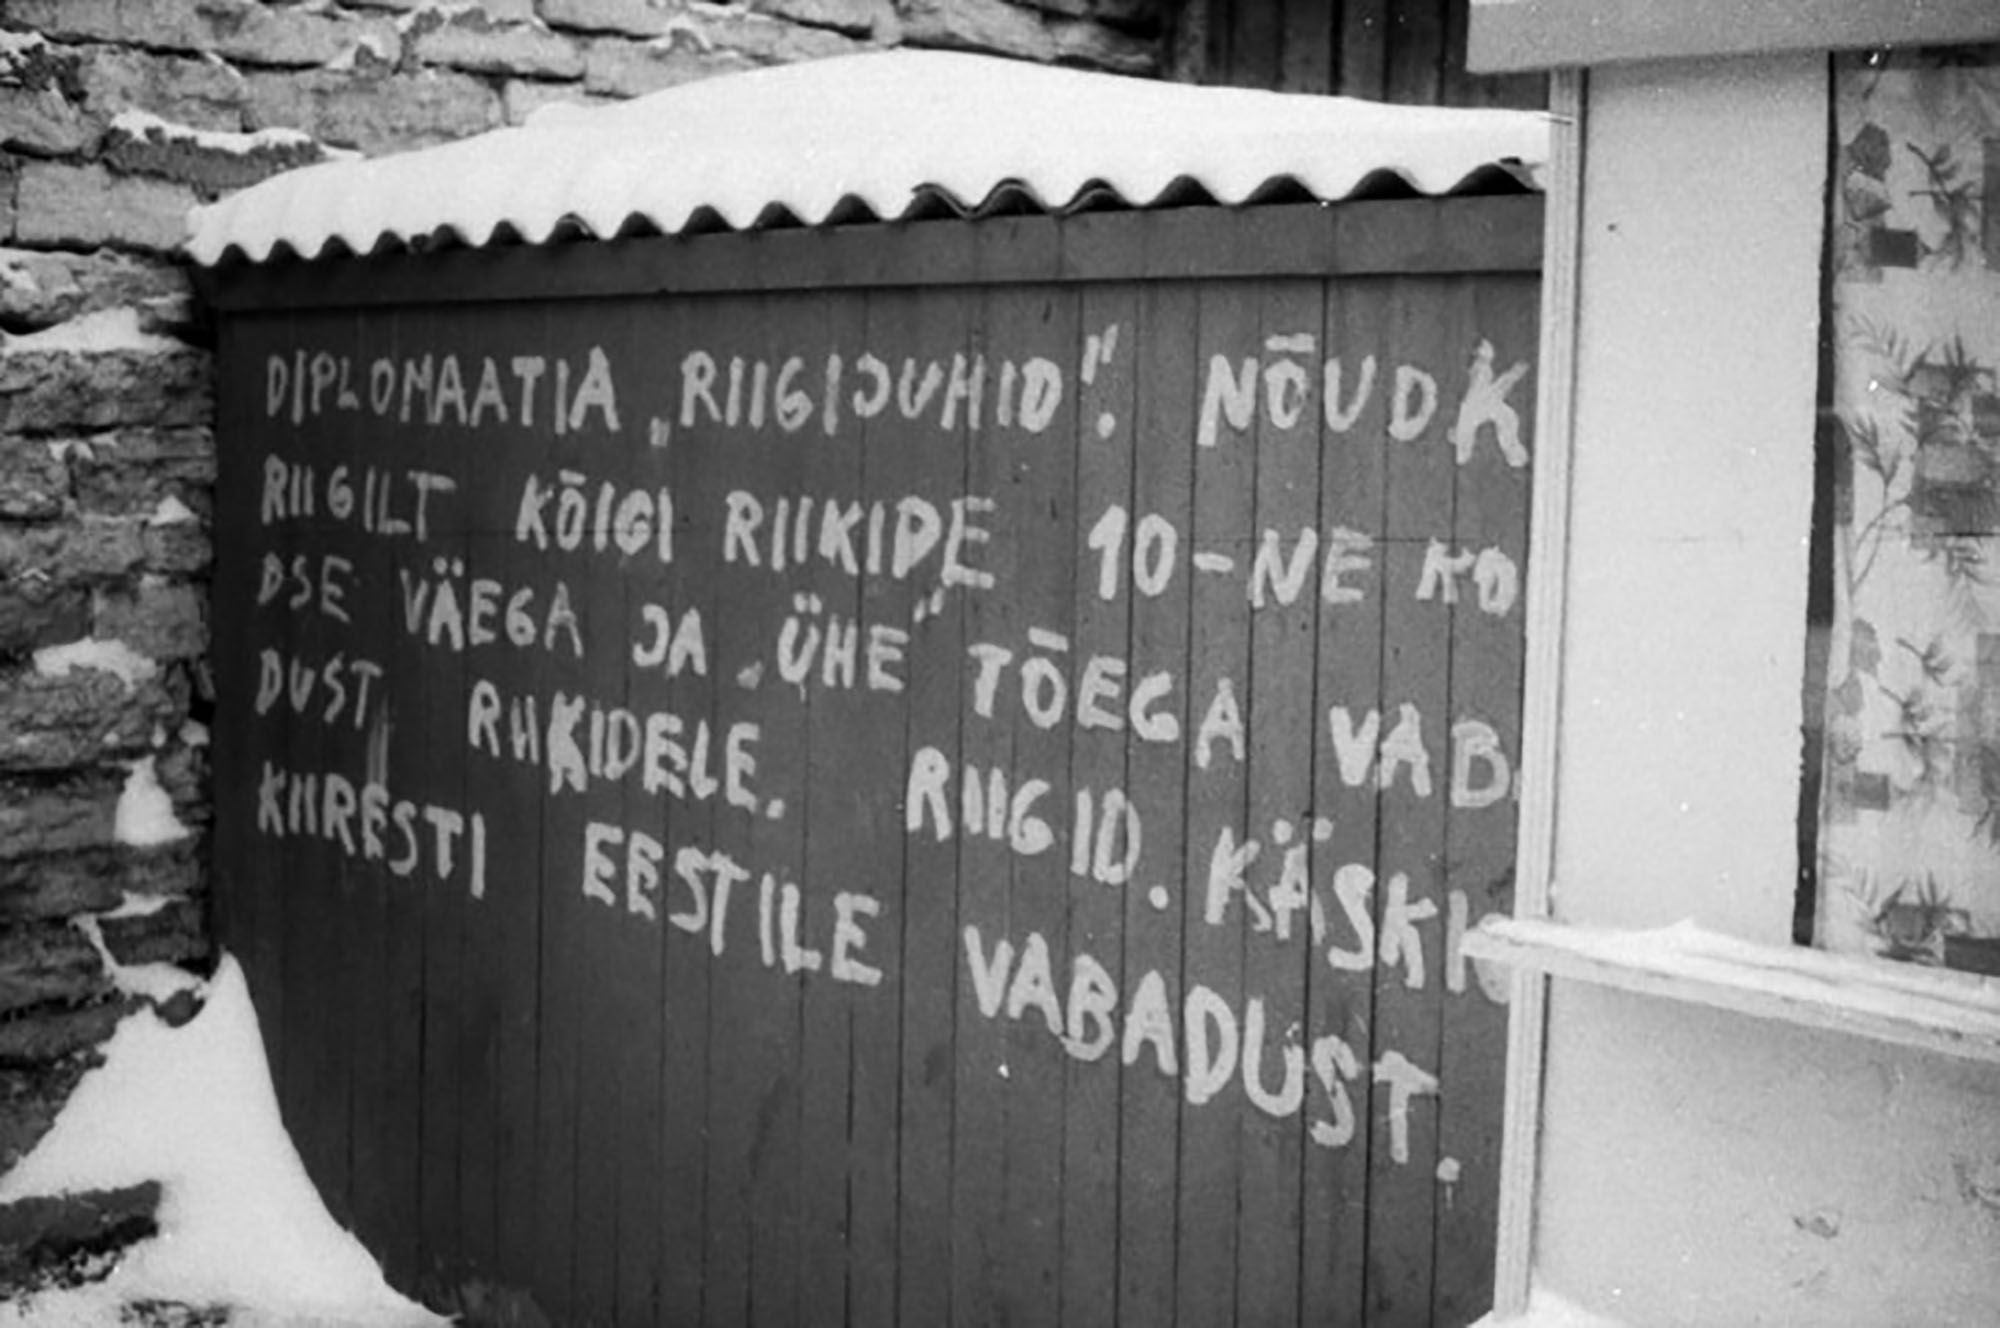 DIPLOMAATIA „RIIGIJUHID“. NÕUDK
RIIGILT KÕIGI RIIKIDE 10-NE KO
DSE VÄEGA JA „ÜHE“ TÕEGA VAB
DUST RIIKIDELE. RIIGID. KÄSKI
KIIRESTI EESTILE VABADUST.